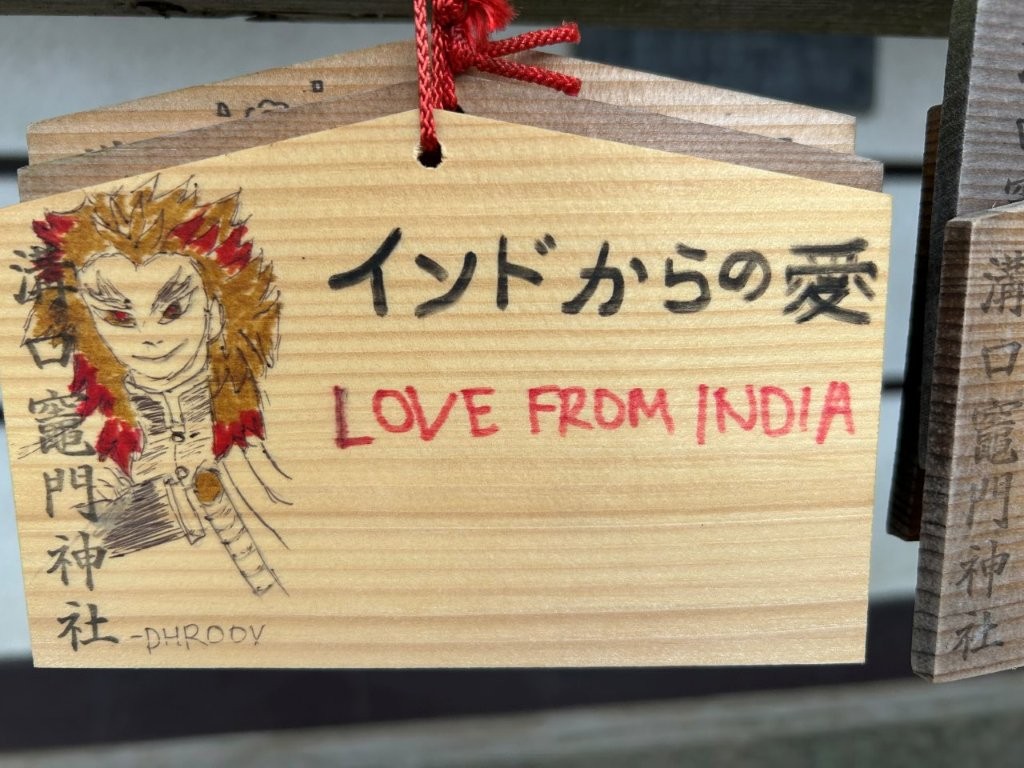 インドからの愛
LOVE FROM INDIA
溝口竈門神社
-DHROOV
溝口竈門神社